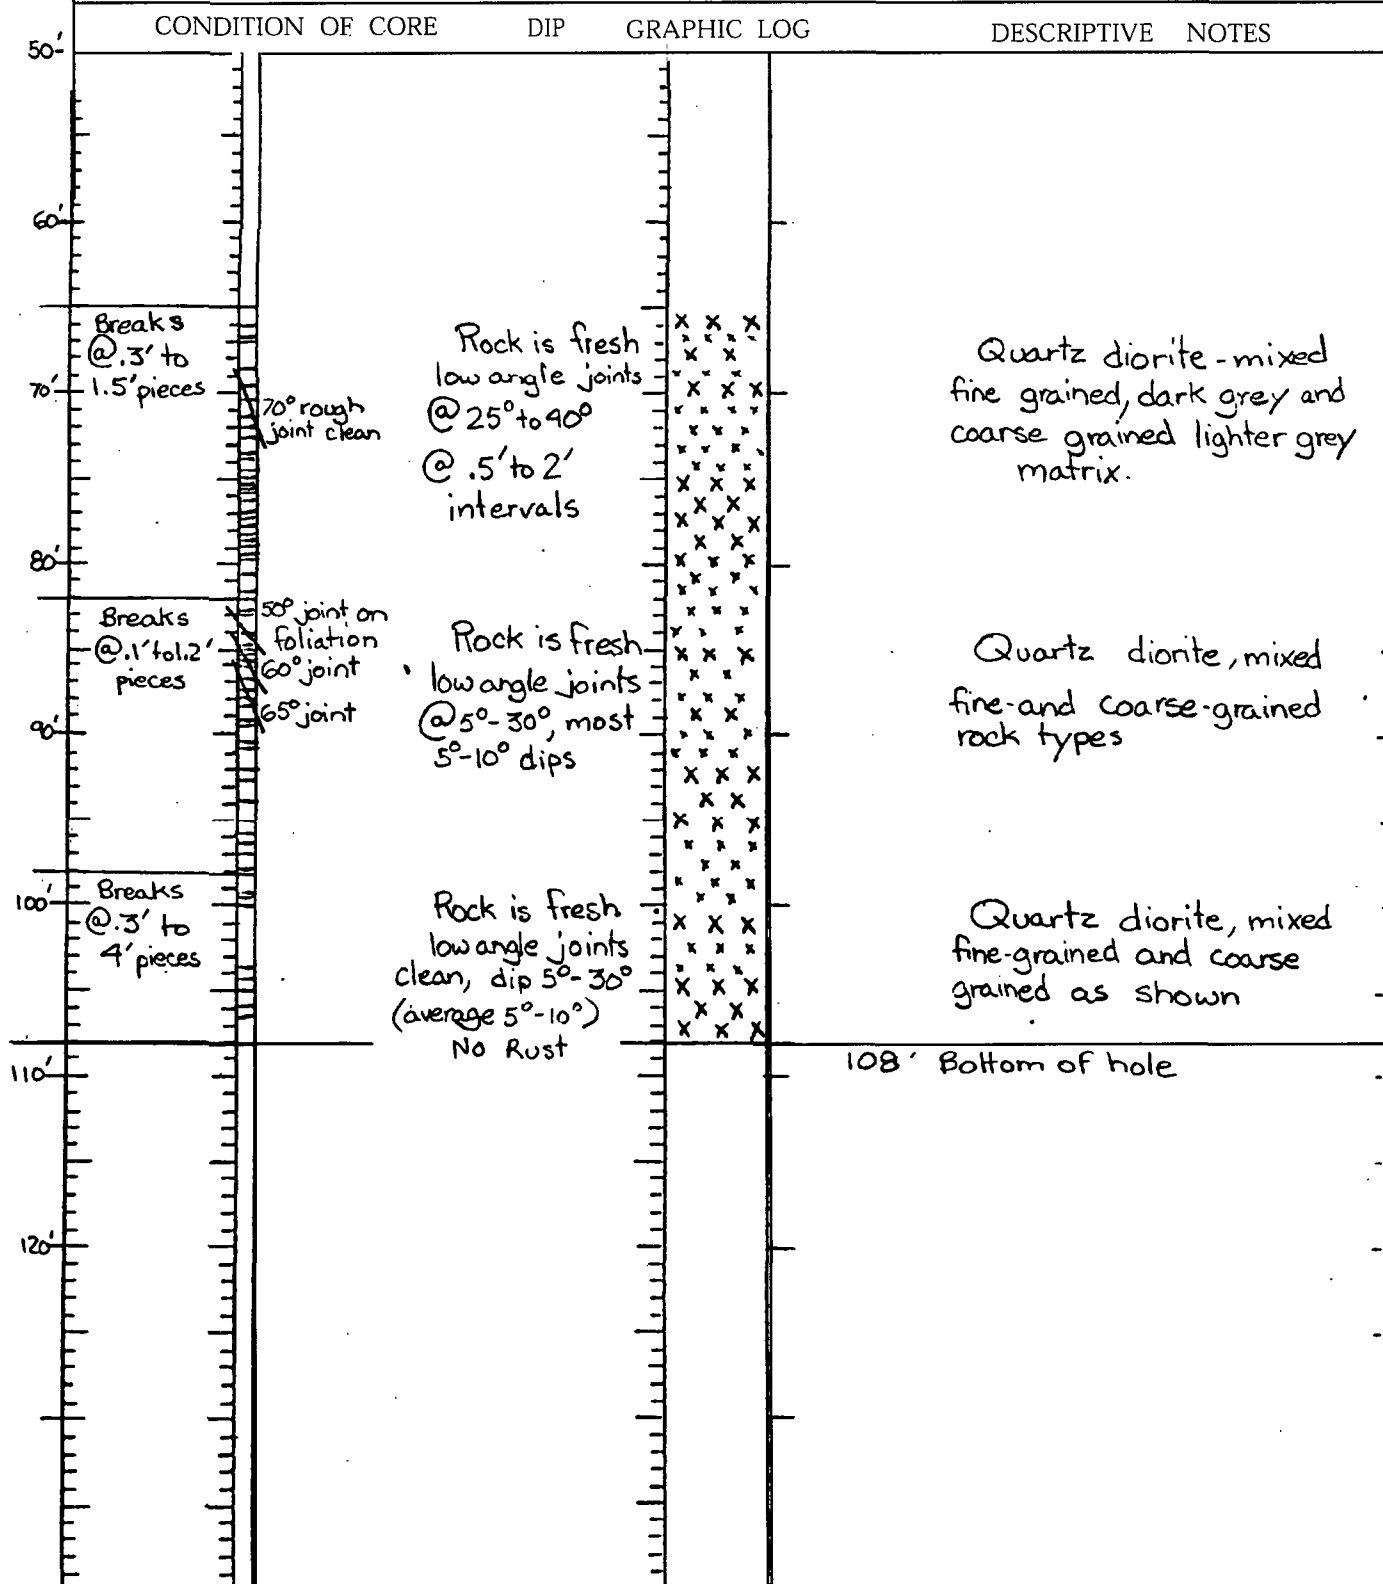 CONDITION OF CORE DIP GRAPHIC LOG DESCRIPTIVE NOTES
50'
60'
70'
80'
90'
100'
110'
120'
Breaks
@ .3' to
1.5' pieces
70° rough
joint clean
Rock is fresh
low angle joints
@ 25° to 40°
@ .5' to 2'
intervals
Quartz diorite - mixed
fine grained, dark grey and
coarse grained lighter grey
matrix.
Breaks
@ .1' to 1.2'
pieces
50° joint on
foliation
60° joint
65° joint
Rock is fresh
low angle joints
@ 5°-30°, most
5°-10° dips
Quartz diorite, mixed
fine-and coarse-grained
rock types
Breaks
@ .3' to
4' pieces
Rock is fresh
low angle joints
clean, dip 5°-30°
(average 5°-10°)
No Rust
Quartz diorite, mixed
fine-grained and coarse
grained as shown
108' Bottom of hole